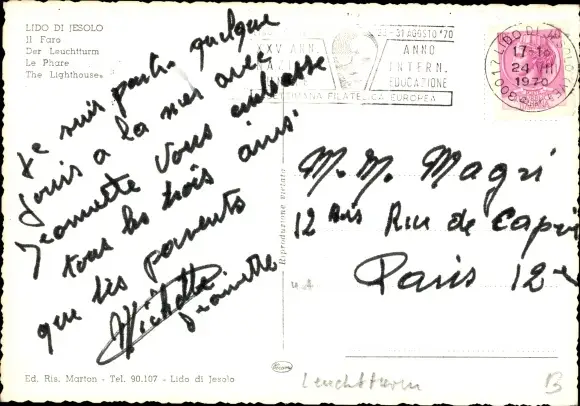 LIDO DI JESOLO
Il Faro
Der Leuchtturm
Le Phare
The Lighthouse
Je suis partie quelque
jours a la mer avec
Jeannette Vous embrasse
tous les trois ainsi
que les parents
Michette
Jeannette
Ed. Ris. Marton - Tel. 90.107 - Lido di Jesolo
Riproduzione vietata
31 AGOSTO '70
XXV ANN.
ANNO
INTERN.
EDUCAZIONE
SETTIMANA FILATELICA EUROPEA
30017 LIDO DI JESOLO
17-18
24 VII
1970
M. M. Magri
12 Bis Rue de Capri
Paris 12e
Leuchtturm
B